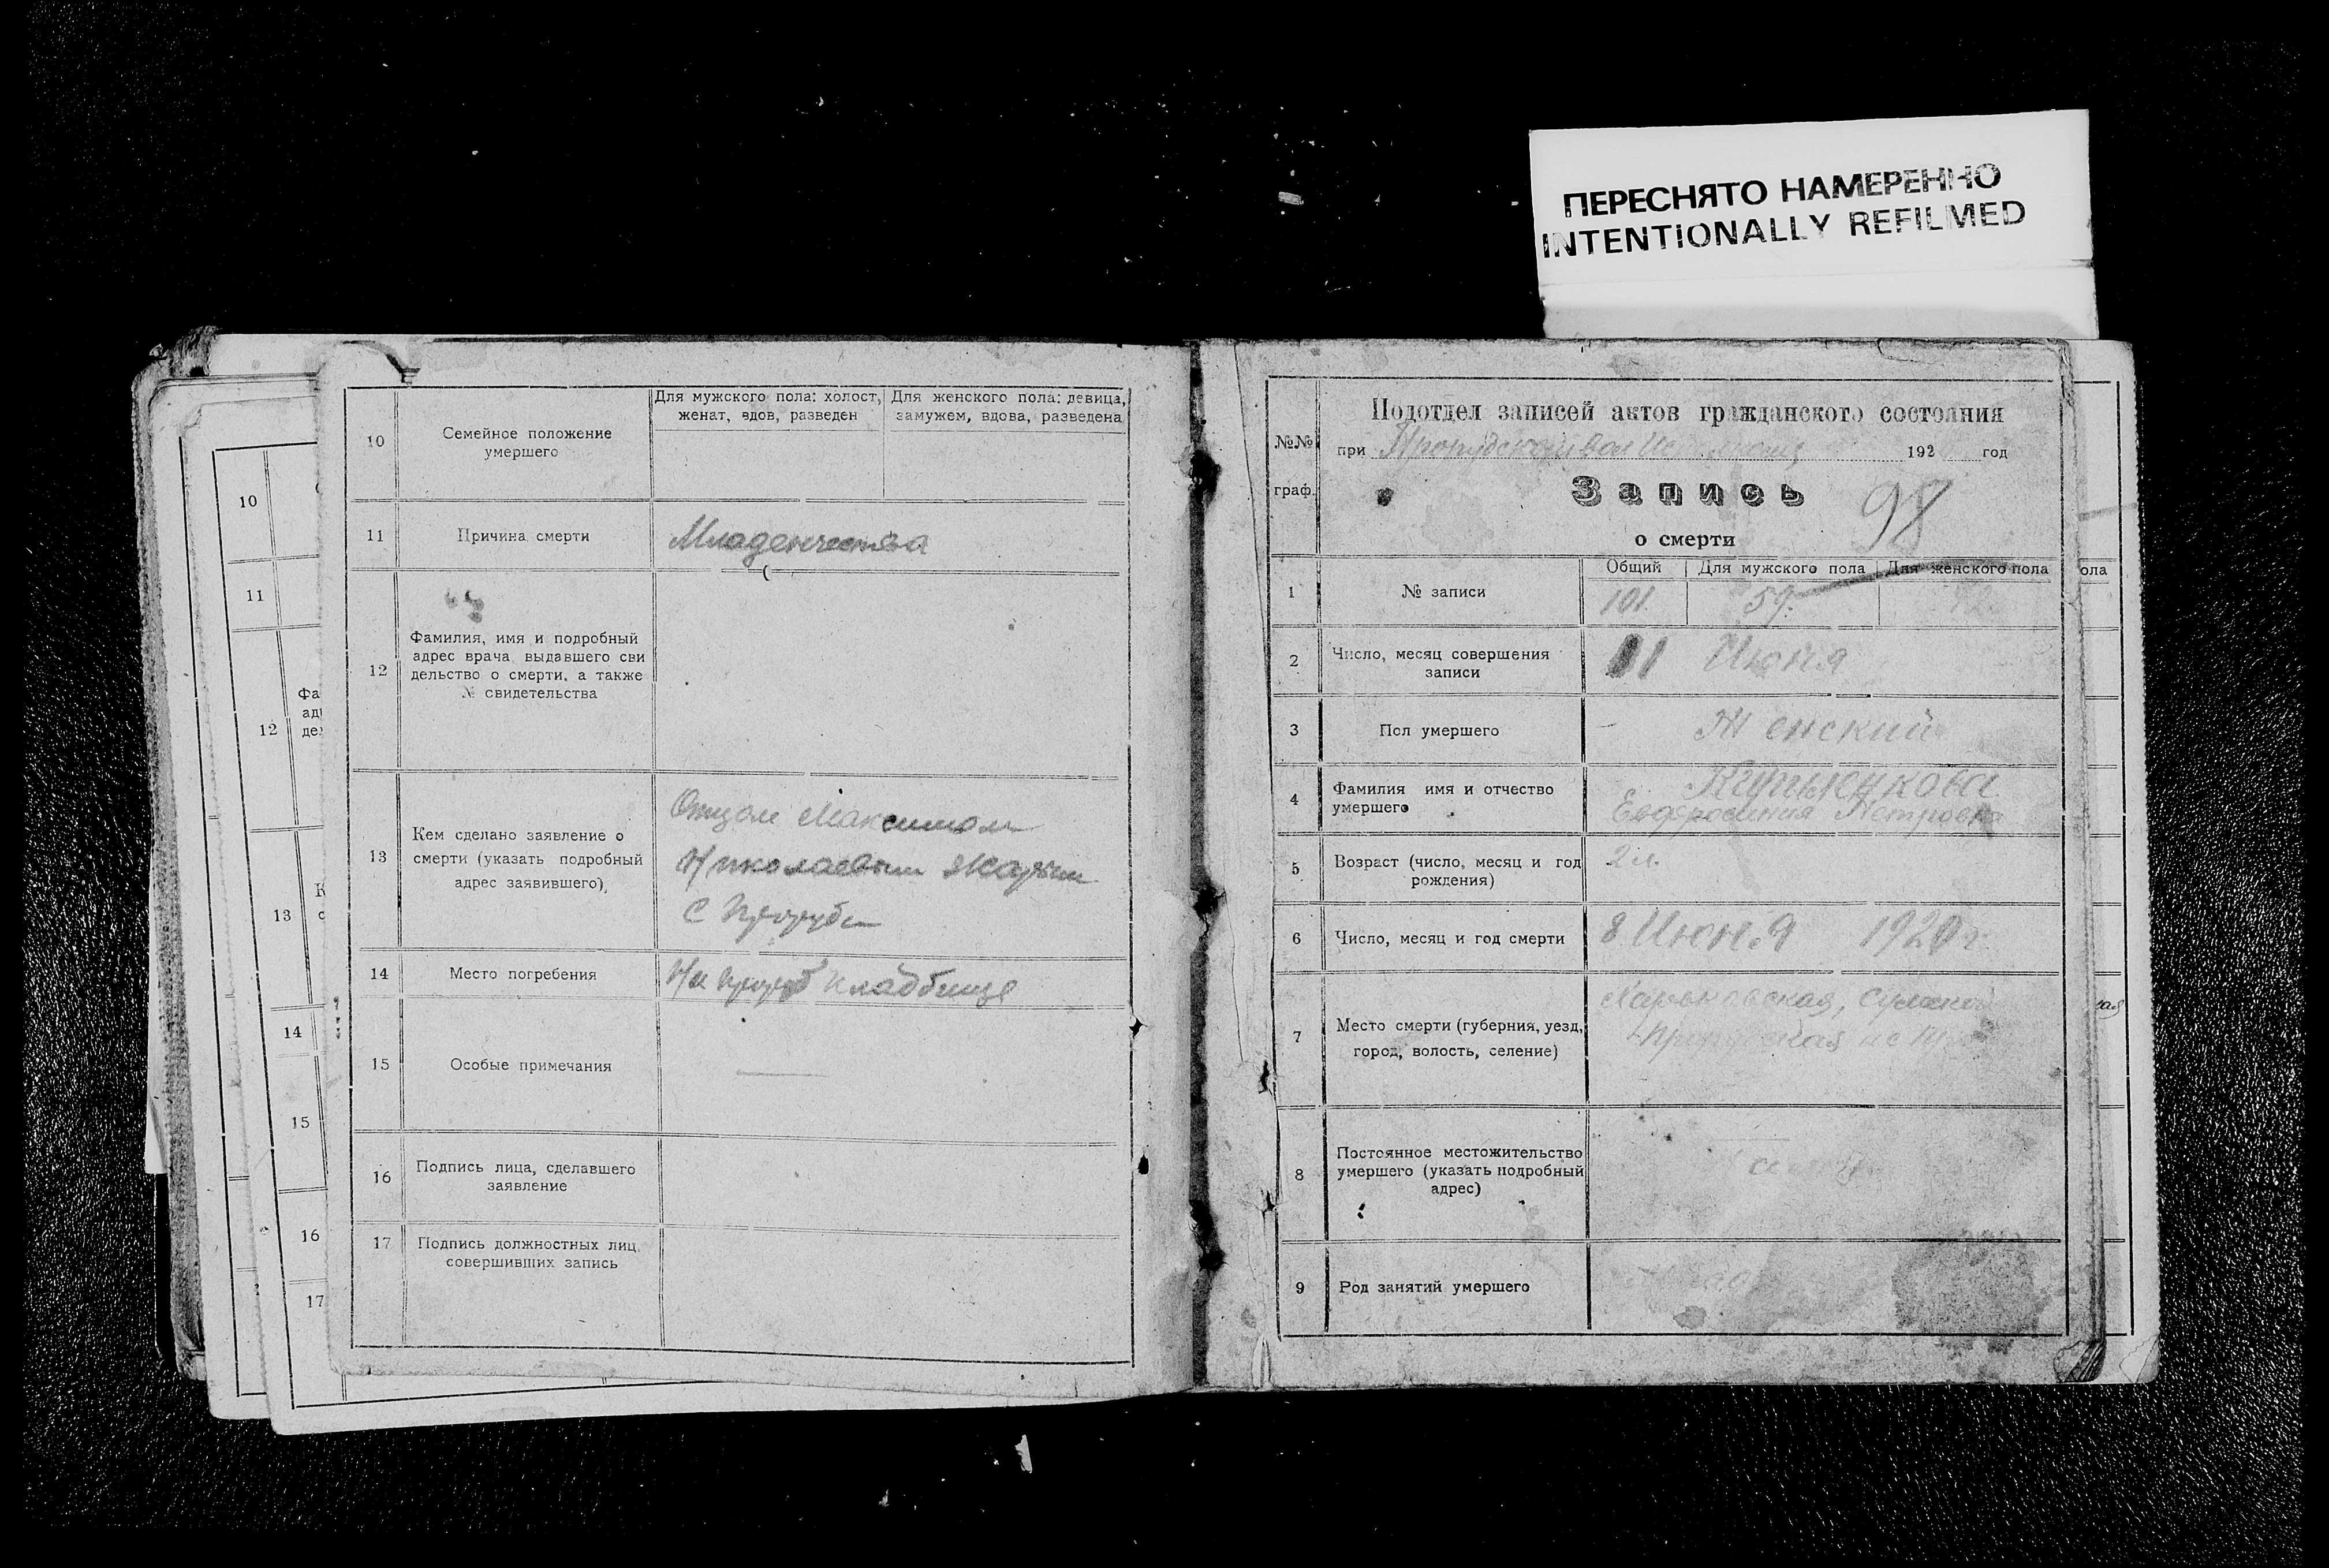 ПЕРЕСНЯТО НАМЕРЕННО
INTENTIONALLY REFILMED
10
11
12
Фа
13
14
15
16
17
10
Семейное положение
умершего
Для мужского пола: холост,
женат, вдов, разведен
Для женского пола: девица,
замужем, вдова, разведена
11
Причина смерти
Младенчества
12
Фамилия, имя и подробный
адрес врача выдавшего сви
дельство о смерти, а также
№ свидетельства
13
Кем сделано заявление о
смерти (указать подробный
адрес заявившего)
Отцом Максимом
Николаевым
с
14
Место погребения
На кладбище
15
Особые примечания
16
Подпись лица, сделавшего
заявление
17
Подпись должностных лиц,
совершивших запись
№№
граф.
Подотдел записей актов гражданского состояния
при 192 год
Запись
98
о смерти
1
№ записи
Общий
Для мужского пола
Для женского пола
ола
101
59
42
2
Число, месяц совершения
записи
11 Июня
3
Пол умершего
Женский
4
Фамилия имя и отчество
умершего
Евфросиния Петровна
5
Возраст (число, месяц и год
рождения)
2 л.
6
Число, месяц и год смерти
8 Июня 1920 г
7
Место смерти (губерния, уезд,
город, волость, селение)
Харьковская, Сумской
8
Постоянное местожительство
умершего (указать подробный
адрес)
9
Род занятий умершего